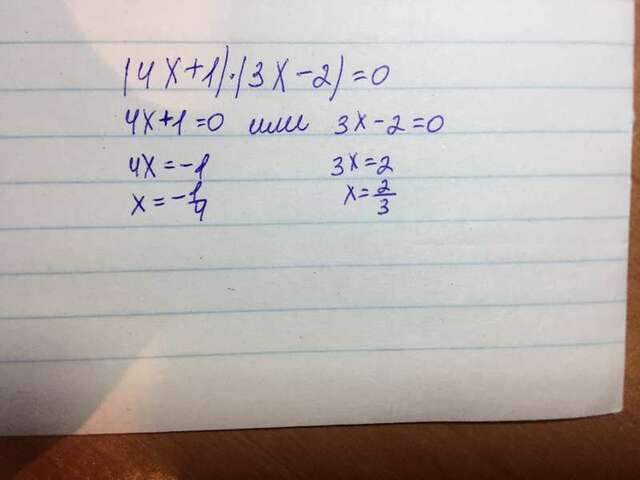 (4x+1)·(3x-2)=0
4x+1=0 или 3x-2=0
4x=-1 3x=2
x=-1/4 x=2/3